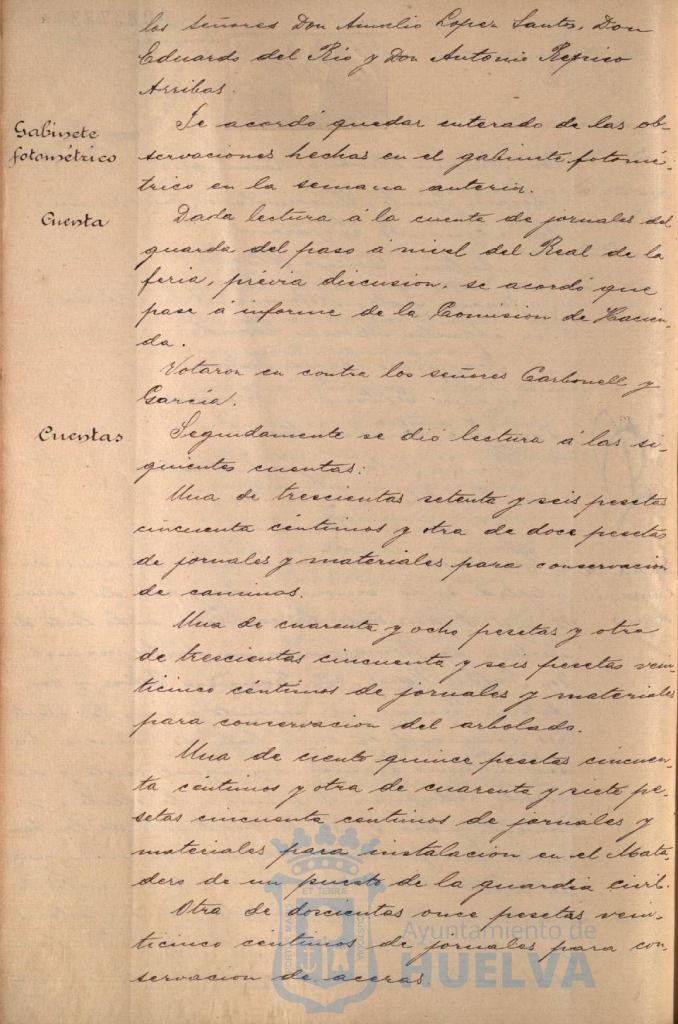 los señores Don Amelio Lopez Santos, Don
Eduardo del Rio y Don Antonio Repiso
Arribas.
Gabinete
fotométrico
Se acordó quedar enterado de las ob-
servaciones hechas en el gabinete fotomé-
trico en la semana anterior.
Cuenta
Dada lectura á la cuenta de jornales del
guarda del paso á nivel del Real de la
feria, prévia discusion, se acordó que
pase á informe de la Comision de Hacien-
da.
Votaron en contra los señores Carbonell y
García.
Cuentas
Seguidamente se dió lectura á las si-
guientes cuentas:
Una de trescientas setenta y seis pesetas
cincuenta céntimos y otra de doce pesetas
de jornales y materiales para conservacion
de caminos.
Una de cuarenta y ocho pesetas y otra
de trescientas cincuenta y seis pesetas vein-
ticinco céntimos de jornales y materiales
para conservacion del arbolado.
Una de ciento quince pesetas cincuen-
ta céntimos y otra de cuarenta y siete pe-
setas cincuenta céntimos de jornales y
materiales para instalacion en el Mata-
dero de un puesto de la guardia civil.
Otra de doscientas once pesetas vein-
ticinco céntimos de jornales para con-
servacion de aceras.
Ayuntamiento de
HUELVA